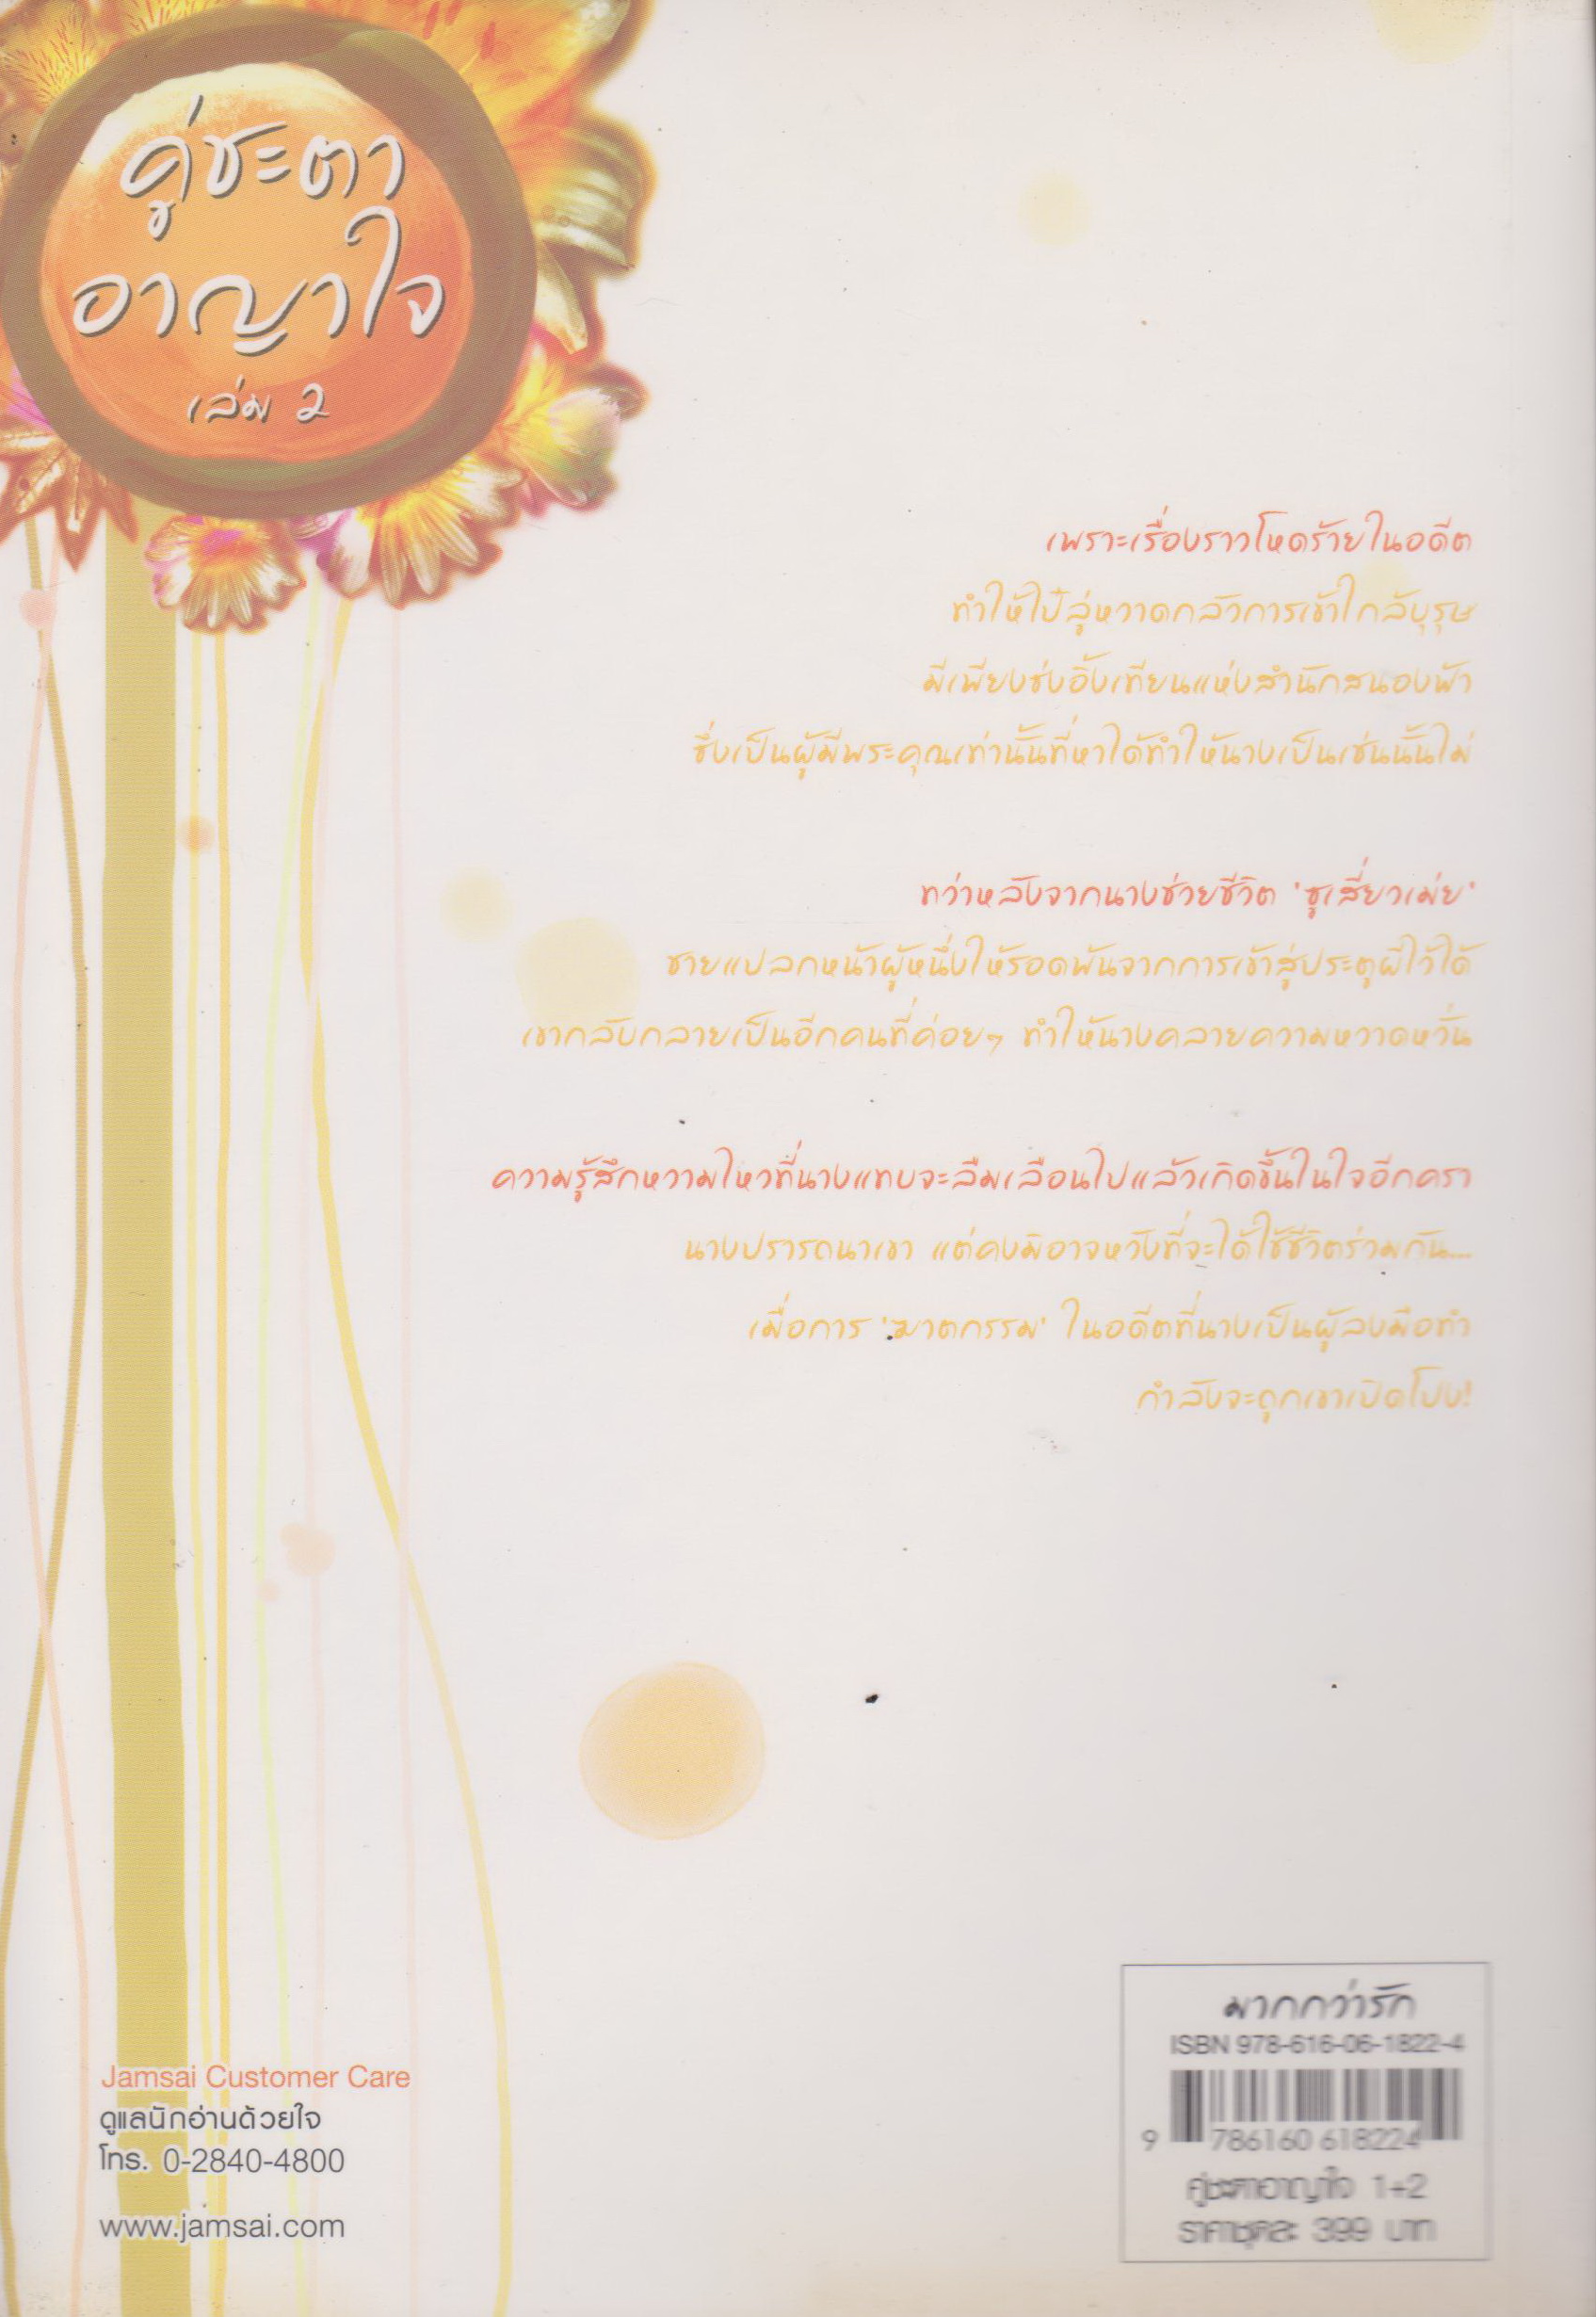 คู่ชะตา
อาญาใจ
เล่ม 2
เพราะเรื่องราวโหดร้ายในอดีต
ทำให้ไป๋ลู่หวาดกลัวการเข้าใกล้บุรุษ
มีเพียงซ่งอิ้งเทียนแห่งสำนักสนองฟ้า
ซึ่งเป็นผู้มีพระคุณเท่านั้นที่หาได้ทำให้นางเป็นเช่นนั้นไม่
ทว่าหลังจากนางช่วยชีวิต 'ซูเสี่ยวเม่ย'
ชายแปลกหน้าผู้หนึ่งให้รอดพ้นจากการเข้าสู่ประตูผีไว้ได้
เขากลับกลายเป็นอีกคนที่ค่อยๆ ทำให้นางคลายความหวาดหวั่น
ความรู้สึกหวามไหวที่นางแทบจะลืมเลือนไปแล้วเกิดขึ้นในใจอีกครา
นางปรารถนาเขา แต่คงมิอาจหวังที่จะได้ใช้ชีวิตร่วมกัน...
เมื่อการ 'ฆาตกรรม' ในอดีตที่นางเป็นผู้ลงมือทำ
กำลังจะถูกเขาเปิดโปง!
Jamsai Customer Care
ดูแลนักอ่านด้วยใจ
โทร. 0-2840-4800
www.jamsai.com
มากกว่ารัก
ISBN 978-616-06-1822-4
9 786160 618224
คู่ชะตาอาญาใจ 1+2
ราคาชุดละ 399 บาท